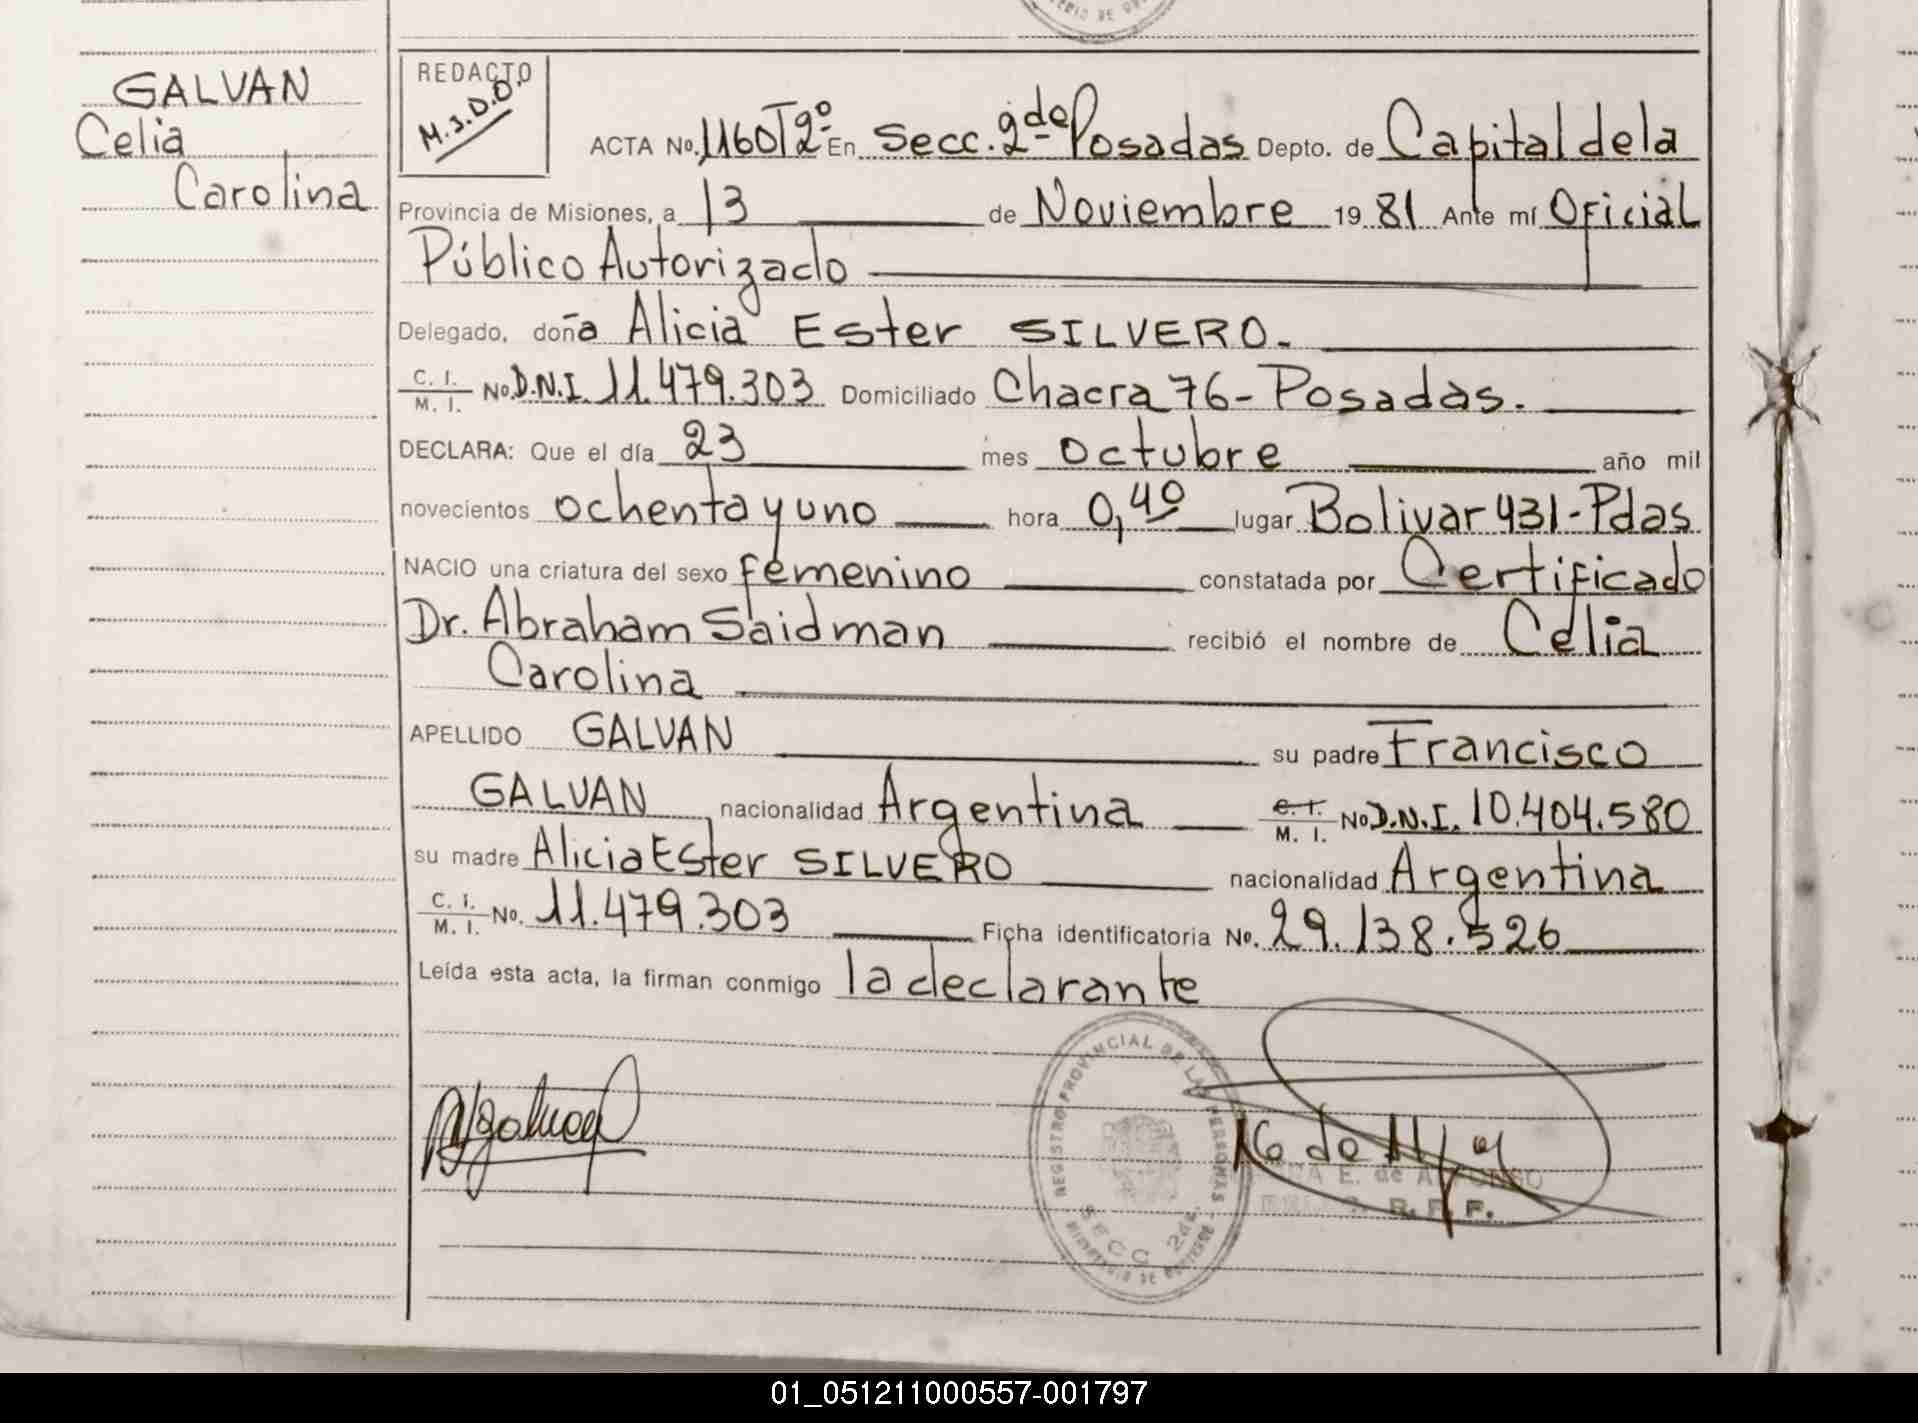 GALVAN
Celia
Carolina
REDACTO
M.J.D.O.
ACTA No. 1160 T2º En Secc. 2da Posadas Depto. de Capital de la
Provincia de Misiones, a 13 de Noviembre 19 81 Ante mí Oficial
Público Autorizado
Delegado, doña Alicia Ester SILVERO.
C. I. / M. I. No. D.N.I. 11.479.303 Domiciliado Chacra 76 - Posadas.
DECLARA: Que el día 23 mes octubre año mil
novecientos ochenta y uno hora 0,40 lugar Bolivar 431 - Pdas
NACIO una criatura del sexo femenino constatada por Certificado
Dr. Abraham Saidman recibió el nombre de Celia
Carolina
APELLIDO GALVAN su padre Francisco
GALVAN nacionalidad Argentina C. I. / M. I. No D.N.I. 10.404.580
su madre Alicia Ester SILVERO nacionalidad Argentina
C. I. / M. I. No. 11.479.303 Ficha identificatoria No. 29.138.526
Leída esta acta, la firman conmigo la declarante
REGISTRO PROVINCIAL DE LAS PERSONAS
SECC 2da.
E. de
01_051211000557-001797